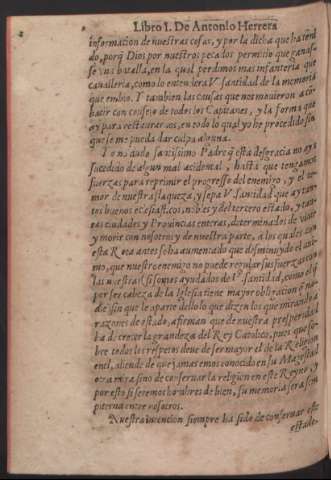 Libro I. De Antonio Herrera
informacion de nuestras cosas, y por la dicha que ha tenido,
porq̃ Dios por nuestros pecados permitio que ganasse
una batalla, en la qual perdimos mas infanteria que
cavalleria, como lo entendera V. Santidad de la memoria
que embio. Y tambien las causas que nos movieron a combatir
con consejo de todos los Capitanes, y la forma que
ay para restauraros, en todo lo qual yo he procedido sin
que se me pueda dar culpa alguna.
Yo no dudo santissimo Padre q̃ esta desgracia no era
sucedido de algun mal acidental, hasta que tengamos
fuerzas para reprimir el progresso del enemigo, y el temor
de nuestra flaqueza, y sepa V. Santidad que ay tantos
buenos eclesiasticos, nobles y del tercero estado, y tantas
ciudades y Provincias enteras, determinados de vivir
y morir con nosotros y de nuestra parte, a los quales con
esta Rota antes se ha aumentado que disminuydo el animo,
que nuestro enemigo no puede ygualar sus fuerzas con
las nuestras si somos ayudados de Vª Santidad, como el q̃
por ser cabeza de la Iglesia tiene mayor obligacion q̃ nadie
sin que le aparte dello lo que dizen los que mirando a
razones de estado, afirman que de nuestra prosperidad
ha de crecer la grandeza del Rey Catolico, pues que sobre
todos los respetos deve de ser mayor el de la Religion
en el, aliende de que jamas emos conocido en su Magestad
otra mira sino de conservar la religion en este Reyno, y
por esto si seremos hombres de bien, su memoria sera sempiterna
entre nosotros.
Nuestra intencion siempre ha sido de conservar este
estado-